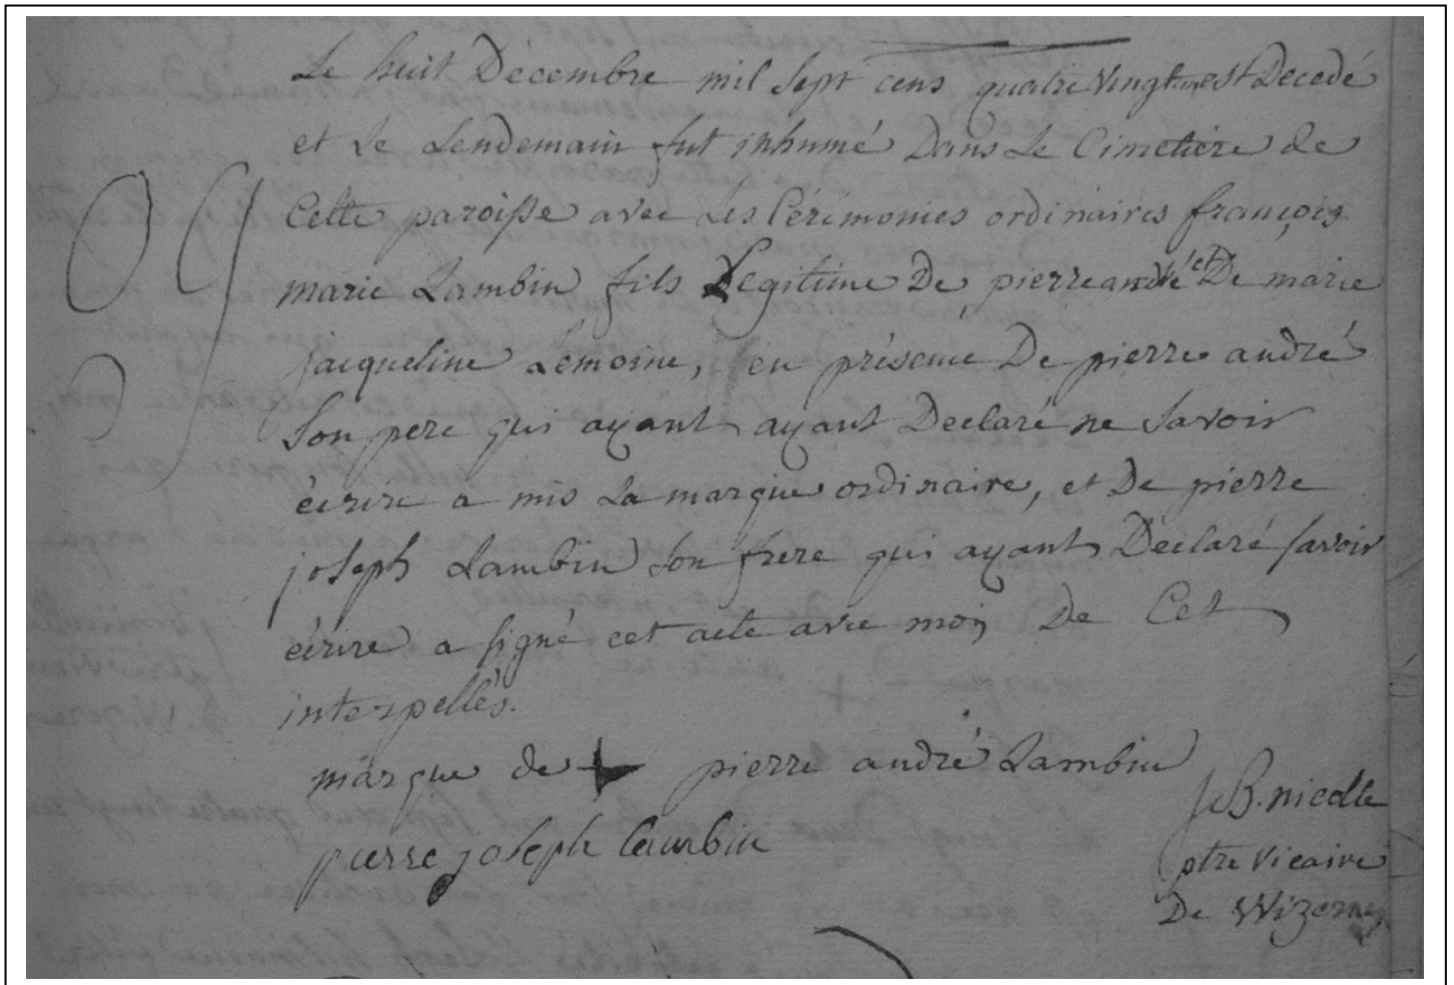 Le huit Décembre mil sept cens quatre Vingt un est Decedé
et le Lendemain fut inhumé Dans Le Cimetiére de
Cette paroisse avec les Cérémonies ordinaires françois
marie Lambin fils Legitime De pierre andré et De marie
jacqueline Lemoine, en présence De pierre andré
Son pere qui ayant ayant Declaré ne Savoir
écrire a mis La marque ordinaire, et De pierre
joseph Lambin Son frere qui ayant Déclaré savoir
écrire a signé cet acte avec moy De Cet
interpellés.
marque de pierre andré Lambin
pierre joseph lambin
J.B. nicolle
ptre Vicaire
De Wizernes